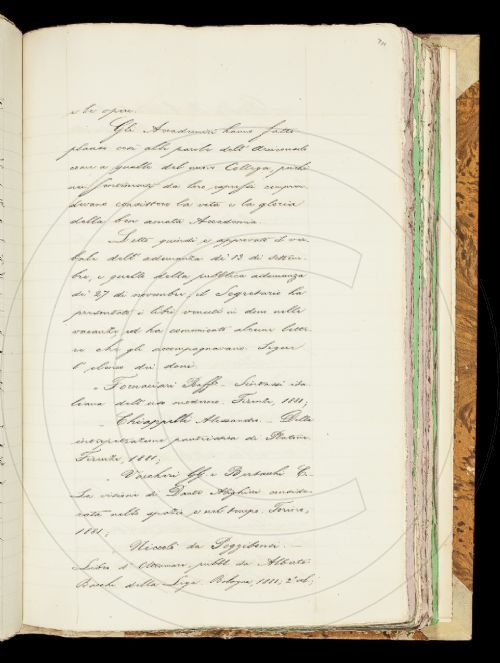 e le opere.
Gli Accademici hanno fatto
plauso così alle parole dell'Arciconsolo
come a quelle del nuovo Collega, poichè
nei sentimenti da loro espressi compren-
devano consistere la vita e la gloria
della ben amata Accademia.
Letto quindi e approvato il ver-
bale dell'adunanza di 13 di settem-
bre, e quello della pubblica adunanza
di 27 di novembre, il Segretario ha
presentato i libri venuti in dono nelle
vacanze, ed ha comunicato alcune lette-
re che gli accompagnavano. Segue
l'elenco dei doni.
" Fornaciari Raff. - Sintassi ita-
liana dell'uso moderno. Firenze, 1881;
" Chiappelli Alessandro. - Della
interpretazione panteistica di Platone.
Firenze, 1881;
" Vaccheri G. G. e Bertacchi C. -
La visione di Dante Alighieri conside-
rata nello spazio e nel tempo. Torino,
1881;
" Niccolò da Poggibonsi. -
Libro d'Oltramare, pubbl. da Alberto
Bacchi della Lega. Bologna, 1881, 2 vol.;